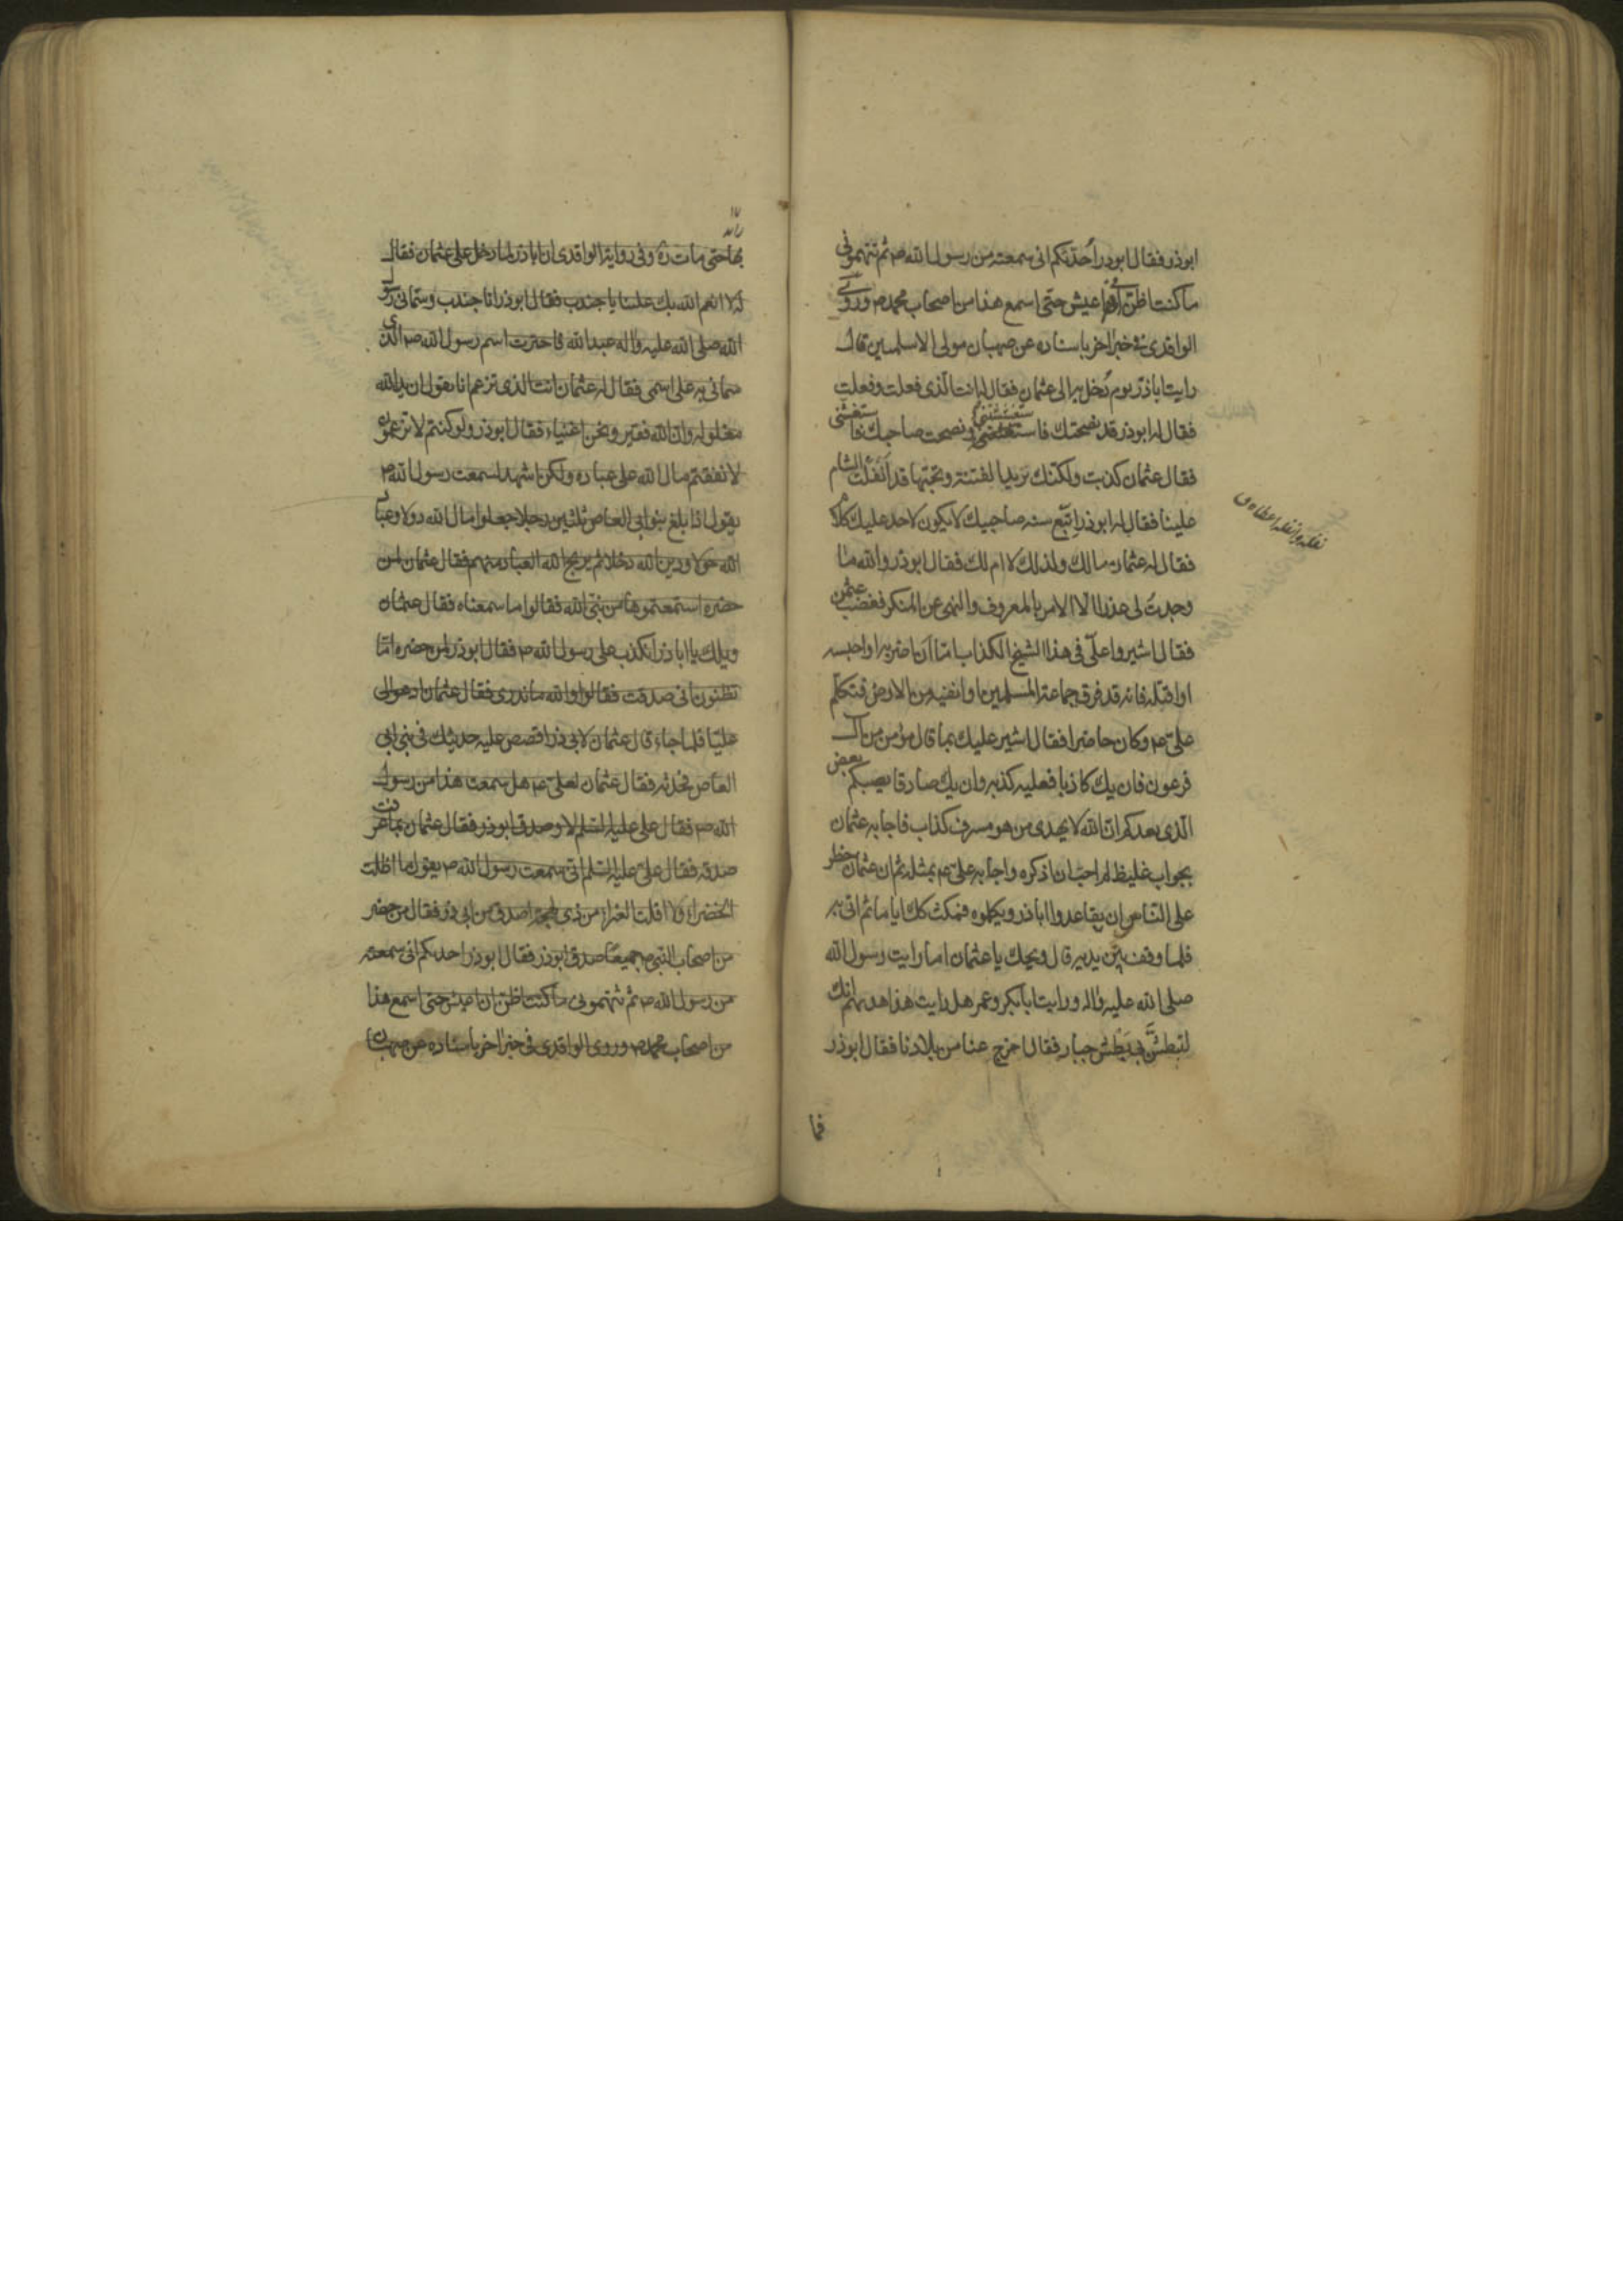 ابوذر فقال ابوذر احدثكم انى سمعته من رسول الله ص ثم تتهمونى
ما كنت اظن انى اعيش حتى اسمع هذا من اصحاب محمد ص وروى
الواقدى فى خبر اخر باسناده عن صهبان مولى الاسلميين قال
رايت اباذر يوم دُخل به الى عثمان فقال له انت الذى فعلت وفعلت
فقال له ابوذر قد نصحتك فاستغششتنى ونصحت صاحبك فاستغشنى
فقال عثمان كذبت ولكنك تريد الفتنة وتحبّها قد انغلت الشام
علينا فقال له ابوذر اتبع سنه صاحبيك لا يكون لاحد عليك كلام
فقال له عثمان مالك ولذلك لا ام لك فقال ابوذر والله ما
وجدت لى عذرا الّا الامر بالمعروف والنهى عن المنكر فغضب عثمن
فقال اشيروا علىّ فى هذا الشيخ الكذاب امّا ان اضربه او احبسه
او اقتله فانه قد فرق جماعة المسلمين او انفيه من الارض فتكلّم
علىّ ع وكان حاضرا فقال اشير عليك بما قال مؤمن من آل
فرعون فان يك كاذبا فعليه كذبه وان يك صادقا يصبكم بعض
الّذى يعدكم انّ الله لا يهدى من هو مسرف كذاب فاجابه عثمان
بجواب غليظ لم احبّ ان اذكره واجابه علىّ ع بمثله ثم ان عثمان حظر
على النّاس ان يقاعدوا اباذر ويكلموه فمكث كك اياما ثم اتى به
فلما وقف بين يديه قال ويحك يا عثمان اما رايت رسول الله
صلى الله عليه واله ورايت ابابكر وعمر هل رايت هذا هديهم انك
لتبطش بى بَطْش جبار فقال اخرج عنا من بلادنا فقال ابوذر
فما
بها حتى مات ره وفى رواية الواقدى ان اباذر لما دخل على عثمان فقال
له لا انعم الله بك علينا يا جندب فقال ابوذر انا جندب وسمّانى رسول
الله صلى الله عليه واله عبدالله فاخترت اسم رسول الله ص الذى
سمانى به على اسمى فقال له عثمان انت الذى تزعم انا نقول ان يد الله
مغلوله وان الله فقير ونحن اغنياء فقال ابوذر ولو كنتم لا تزعمون
لانفقتم مال الله على عباده ولكن اشهد لسمعت رسول الله ص
يقول اذا بلغ بنو ابى العاص ثلثين رجلا جعلوا مال الله دولا وعباد
الله خولا ودين الله دخلا ثم يريح الله العباد منهم فقال عثمان لمن
حضره اسمعتموها من نبىّ الله فقالوا ما سمعناه فقال عثمان
ويلك يا اباذر اتكذب على رسول الله ص فقال ابوذر لمن حضره امّا
تظنون انى صدقت فقالوا والله ما ندرى فقال عثمان ادعوا لى
عليّا فلما جاء قال عثمان لابى ذر اقصص عليه حديثك فى بنى ابى
العاص فحدّثه فقال عثمان لعلىّ ع هل سمعت هذا من رسول
الله ص فقال على عليه السّلم لا وصدق ابوذر فقال عثمان بما عرفت
صدقه فقال علىّ عليه السّلم انى سمعت رسول الله ص يقول ما اظلت
الخضراء ولا اقلت الغبراء من ذى لهجة اصدق من ابى ذر فقال من حضر
من اصحاب النبى ص جميعًا صدق ابوذر فقال ابوذر احدثكم انى سمعته
من رسول الله ص ثم تتهمونى ما كنت اظن ان اعيش حتى اسمع هذا
من اصحاب محمد ص وروى الواقدى فى خبر اخر باسناده عن صهبان